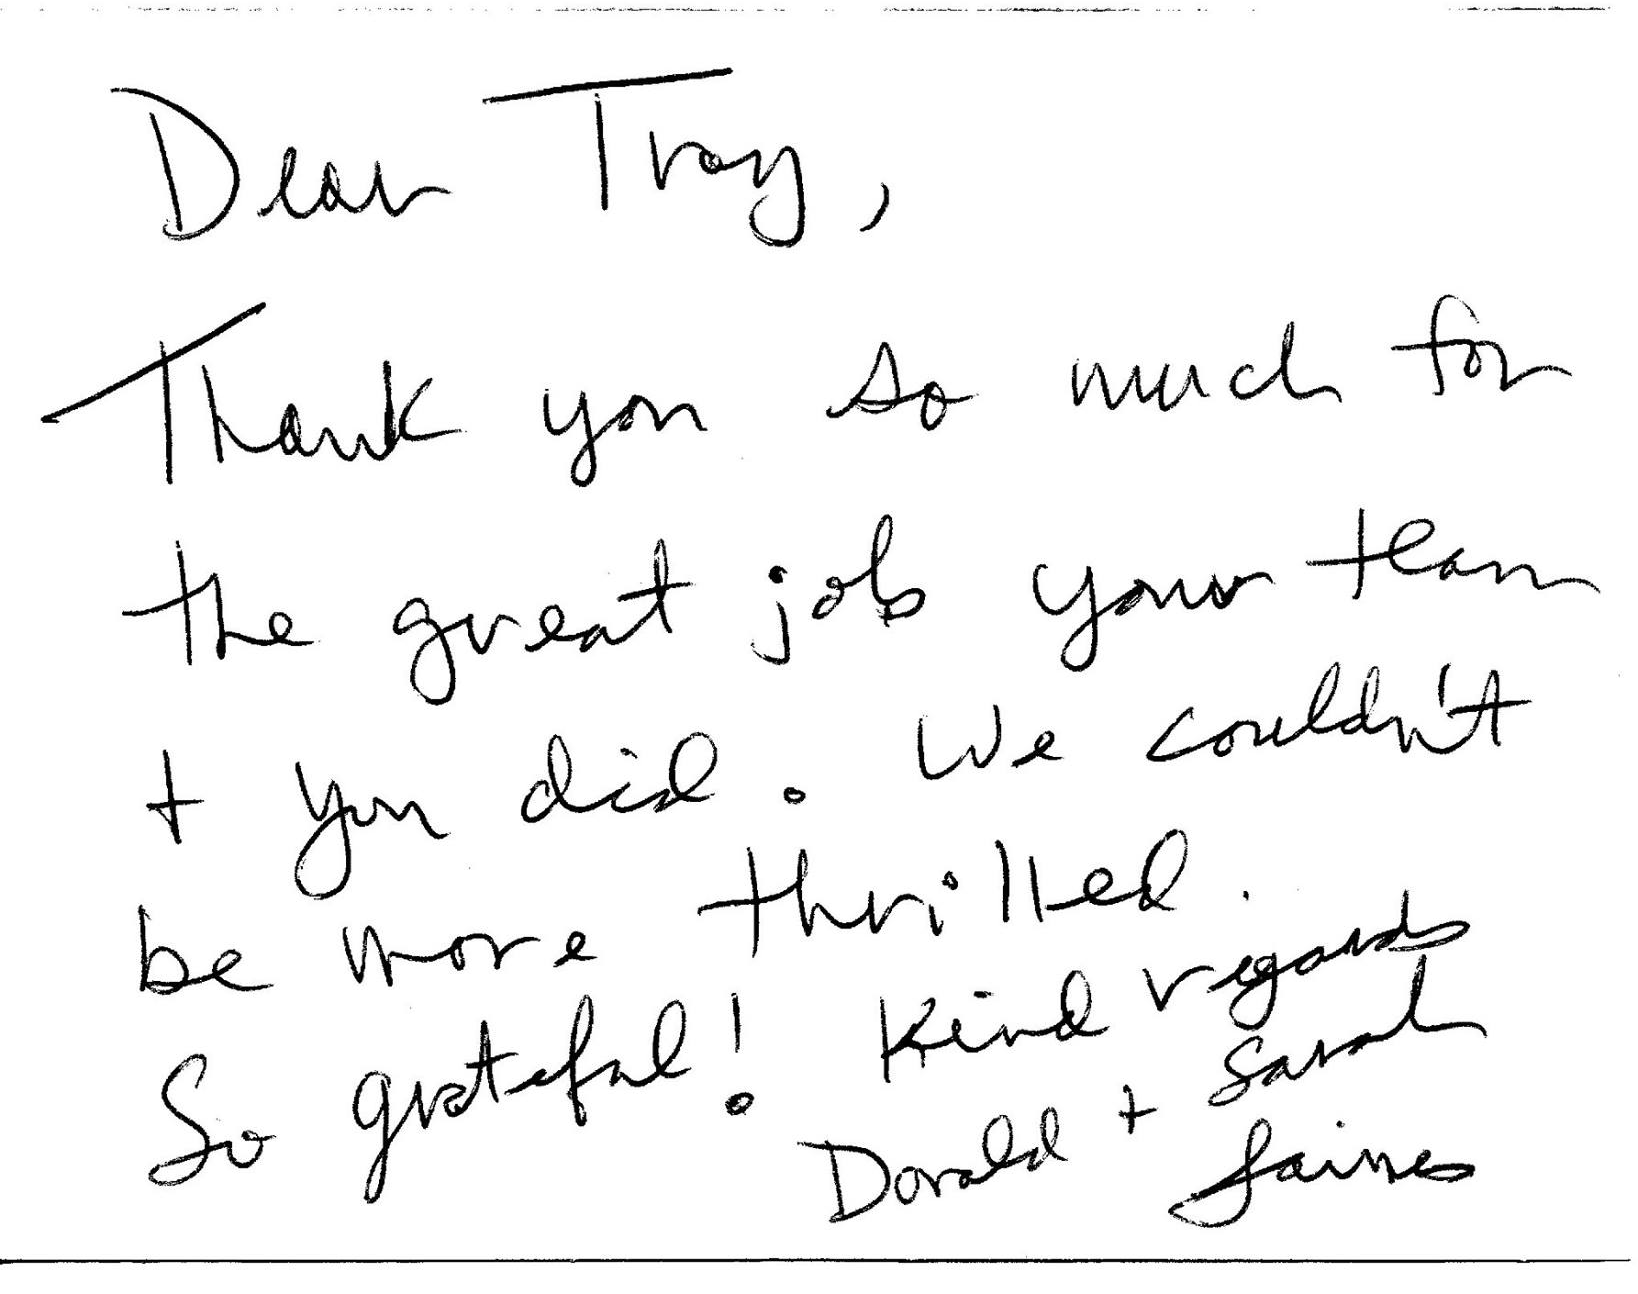 Dear Troy,
Thank you so much for
the great job your team
+ you did. We couldn't
be more thrilled.
So grateful! Kind regards
Donald + Sarah